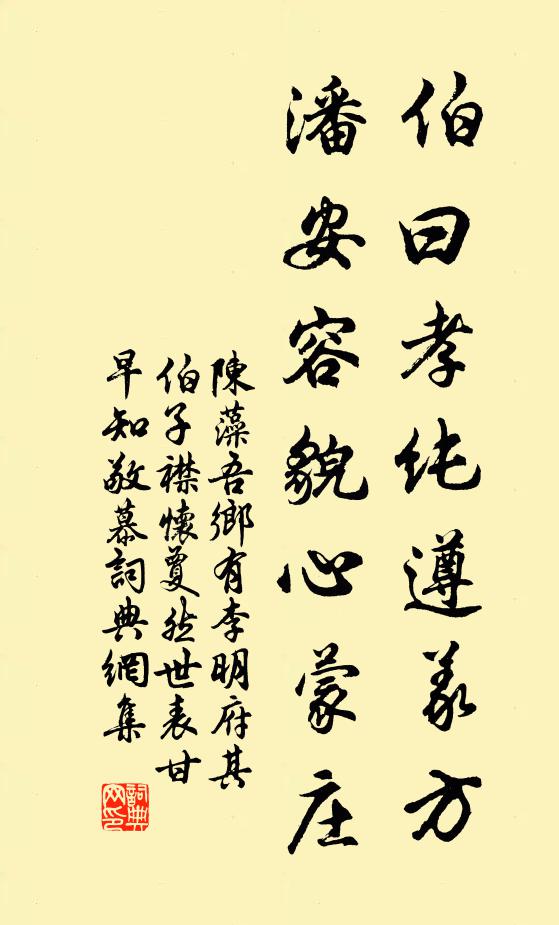 伯曰孝纯遵義方
潘安容貌心蒙庄
陳藻吾鄉有李明府其
伯子襟懷敻然世表甘
早知敬慕詞典網集
詞典
网印